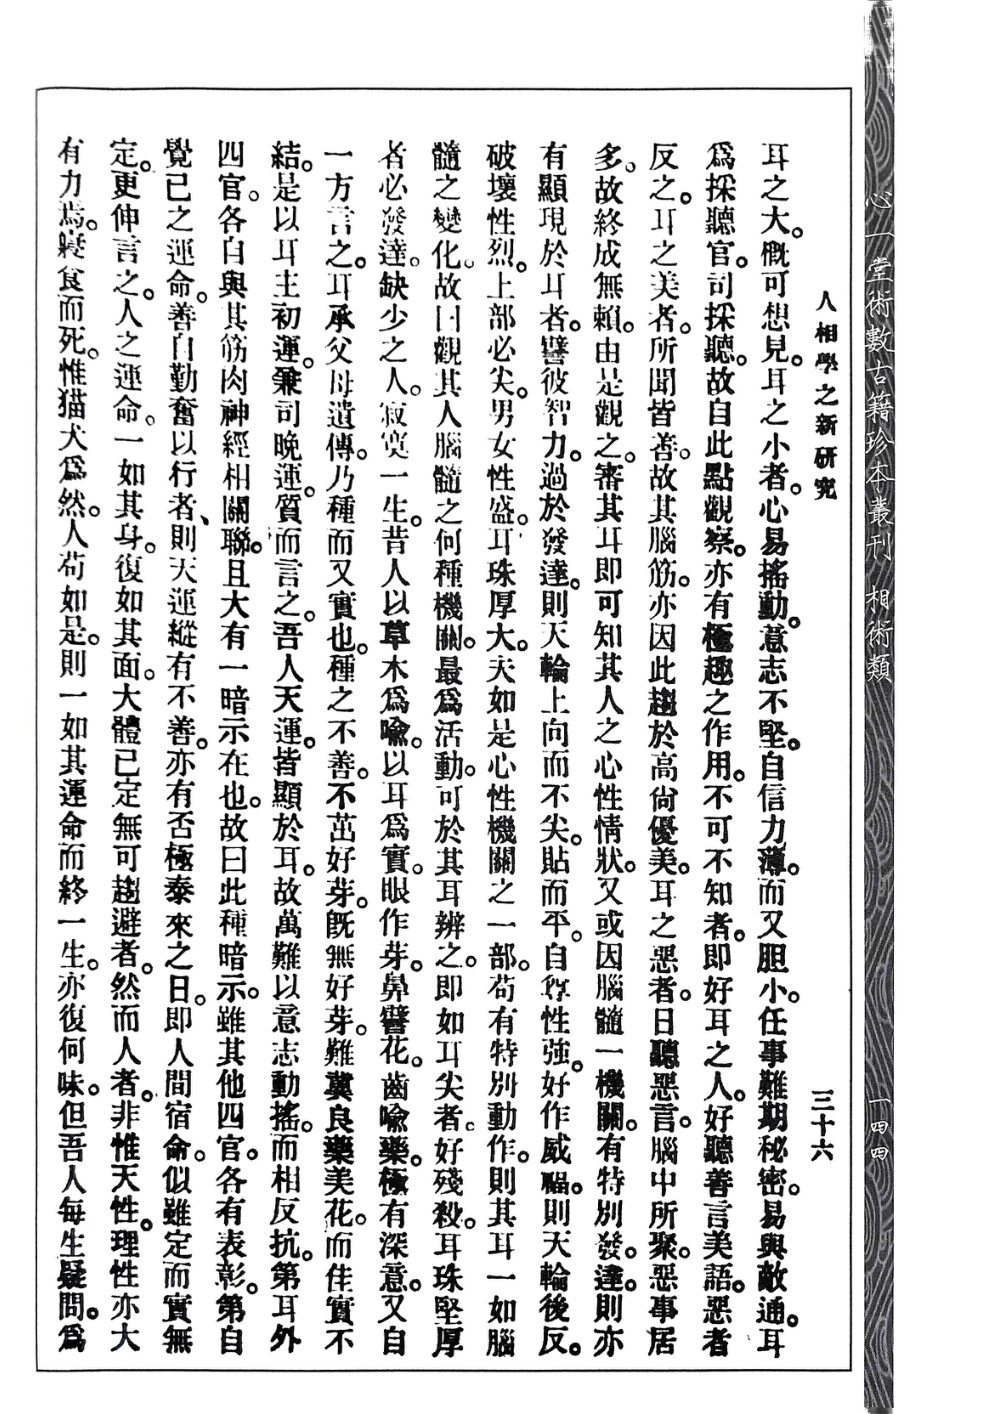 心一堂術數古籍珍本叢刊　相術類　一四四
人相學之新研究　三十六
耳之大。概可想見。耳之小者。心易搖動。意志不堅。自信力薄。而又胆小。任事難期秘密。易與敵通。耳
爲採聽官。司採聽。故自此點觀察。亦有極趣之作用。不可不知者。即好耳之人。好聽善言美語。惡者
反之。耳之美者。所聞皆善。故其腦筋。亦因此趨於高尙優美。耳之惡者。日聽惡言。腦中所聚。惡事居
多。故終成無賴。由是觀之。審其耳即可知其人之心性情狀。又或因腦髓一機關。有特別發達。則亦
有顯現於耳者。譬彼智力。過於發達。則天輪上向而不尖。貼而平。自尊性強。好作威福。則天輪後反。
破壞性烈。上部必尖。男女性盛。耳珠厚大。夫如是心性機關之一部。苟有特別動作。則其耳一如腦
髓之變化。故曰觀其人腦髓之何種機關。最爲活動。可於其耳辨之。即如耳尖者。好殘殺。耳珠堅厚
者必發達。缺少之人。寂寞一生。昔人以草木爲喩。以耳爲實。眼作芽。鼻譬花。齒喩藥。極有深意。又自
一方言之。耳承父母遺傳。乃種而又實也。種之不善。不茁好芽。旣無好芽。難冀良藥美花。而佳實不
結。是以耳主初運。兼司晚運。質而言之。吾人天運。皆顯於耳。故萬難以意志動搖。而相反抗。第耳外
四官。各自與其筋肉神經相關聯。且大有一暗示在也。故曰此種暗示。雖其他四官。各有表彰。第自
覺已之運命。善自勤奮以行者、則天運縱有不善。亦有否極泰來之日。即人間宿命。似雖定而實無
定。更伸言之。人之運命。一如其身。復如其面。大體已定無可趨避者。然而人者。非惟天性。理性亦大
有力焉。寢食而死。惟猫犬爲然。人苟如是。則一如其運命而終一生。亦復何味。但吾人每生疑問。爲